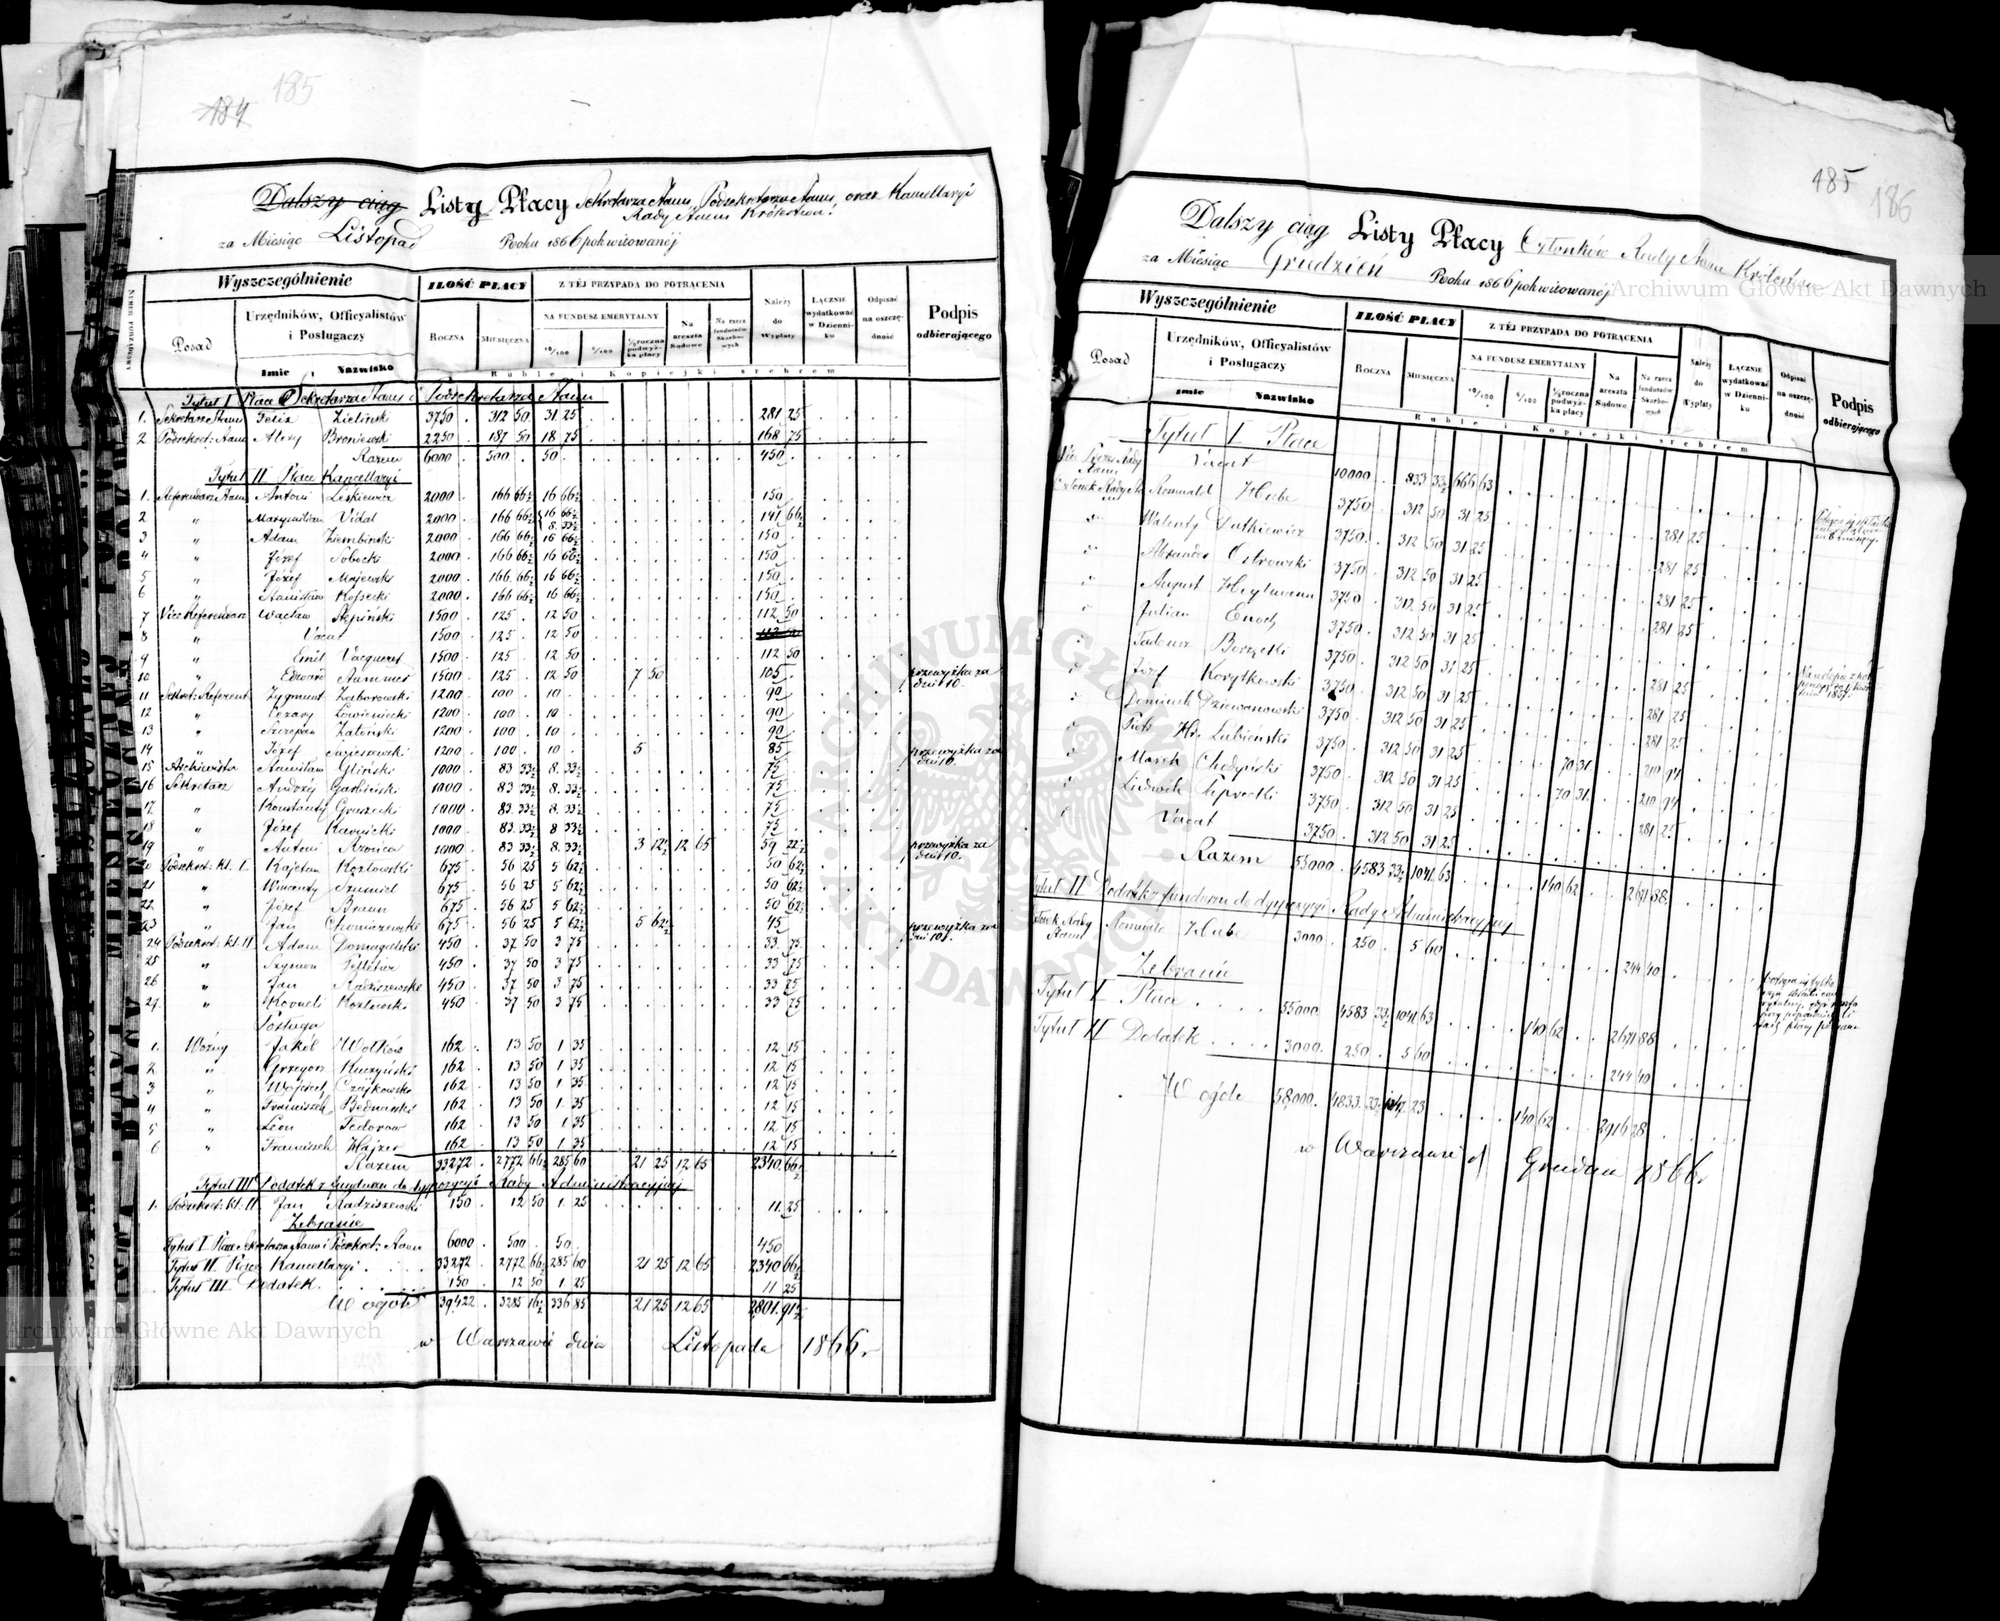 184 185
Dalszy ciąg Listy Płacy Sekretarza Stanu, Podsekretarza Stanu, oraz Kancellaryi
Rady Stanu Królestwa.
za Miesiąc Listopad Roku 1866 pokwitowanéj
Wyszczególnienie
ILOŚĆ PŁACY
Z TÉJ PRZYPADA DO POTRĄCENIA
Posad
Urzędników, Officyalistów
i Posługaczy
Imie i Nazwisko
ROCZNA
MIESIĘCZNA
NA FUNDUSZ EMERYTALNY
10/100
6/100
Na areszta Sądowe
Na rzecz funduszów Skarbowych
Należy do Wypłaty
ŁĄCZNIE wydatkować w Dzienniku
Odpisać na oszczędność
Podpis odbierającego
Ruble i Kopiejki srebrem
Tytuł I Płace Sekretarza Stanu i Podsekretarza Stanu
1. Sekretarz Stanu Felix Zieliński 3750 . 312 50 31 25 281 25
2 Podsekret: Stanu Alexy Broniewski 2250 . 187 50 18 75 168 75
Razem 6000 . 500 . 50 . 450 .
Tytuł II Płace Kancellaryi
1. Referendarz Stanu Antoni 2000 . 166 66½ 16 66½ 150 .
2 " Maxymilian Vidal 2000 . 166 66½ 16 66½ 8. 33½ 141 66½
3 " Adam Ziembiński 2000 . 166 66½ 16 66½ 150 .
4 " Józef Sobocki 2000 . 166 66½ 16 66½ 150 .
5 " Józef Majewski 2000 . 166 66½ 16 66½ 150 .
6 " Stanisław 2000 . 166 66½ 16 66½ 150 .
7 Vice Referendarz Wacław Stępiński 1500 . 125 . 12 50 112 50
8 " Vacat 1500 . 125 . 12 50 112 50
9 " Emil Vacqueret 1500 . 125 . 12 50 112 50
10 " Edward Stummer 1500 . 125 . 12 50 7 50 105 . przewyżka za dni 10.
11 Sekret: Referent Zygmunt Zaborowski 1200 . 100 . 10 . 90 .
12 " Cezary Łowieniecki 1200 . 100 . 10 . 90 .
13 " Szczepan Zaleński 1200 . 100 . 10 . 90 .
14 " Józef 1200 . 100 . 10 . 5 85 . przewyżka za
15 Archiwista Stanisław Gliński 1000 . 83 33½ 8. 33½ 75 .
16 Sekretarz Andrzej Garbiński 1000 . 83 33½ 8. 33½ 75 .
17 " Konstanty Gruszecki 1000 . 83 33½ 8. 33½ 75 .
18 " Józef Kawnicki 1000 . 83 33½ 8 33½ 75 .
19 " Antoni Rzońca 1000 . 83 33½ 8. 33½ 3 12½ 12 65 59 22½ przewyżka za dni 10.
20 Podsekret: kl. I. Kajetan Kozłowski 675 56 25 5 62½ 50 62½
21 " Wincenty Szumiel 675 56 25 5 62½ 50 62½
22 " Józef Braun 675 56 25 5 62½ 50 62½
23 " Jan Choniszewski 675 56 25 5 62½ 5 62½ 45 przewyżka za dni 10.
24 Podsekret: kl. II. Adam Domagalski 450 . 37 50 3 75 33 75
25 " Szymon Pelletier 450 . 37 50 3 75 33 75
26 " Jan Radziszewski 450 . 37 50 3 75 33 75
27 " Korneli Kozłowski 450 . 37 50 3 75 33 75
Posługa
1. Woźny Jakób Wołków 162 . 13 50 1. 35 12 15
2 " Grzegorz Kuczyński 162 . 13 50 1. 35 12 15
3 " Wojciech Czajkowski 162 . 13 50 1. 35 12 15
4 " Franciszek Bednarski 162 . 13 50 1. 35 12 15
5 " Leon Fedorow 162 . 13 50 1. 35 12 15
6 " Franciszek Hajzer 162 . 13 50 1. 35 12 15
Razem 33272 . 2772 66½ 285 60 21 25 12 65 2340 66½
Tytuł III Dodatek z funduszu do dyspozycyi Rady Administracyjnej
1. Podsekret: kl: II. Jan Radziszewski 150 . 12 50 1. 25 11. 25
Zebranie
Tytuł I Płace Sekretarza Stanu i Podsekret: Stanu 6000 . 500 . 50 . 450
Tytuł II. Płace Kancellaryi 33272 . 2772 66½ 285 60 21 25 12 65 2340 66½
Tytuł III Dodatek 150 . 12 50 1. 25 11 25
W ogóle 39422 . 3285 16½ 336 85 21 25 12 65 2,801. 91½
w Warszawie dnia Listopada 1866 r.
185 186
Dalszy ciąg Listy Płacy Członków Rady Stanu Królestwa
za Miesiąc Grudzień Roku 1866 pokwitowanéj
Wyszczególnienie
ILOŚĆ PŁACY
Z TÉJ PRZYPADA DO POTRĄCENIA
Posad
Urzędników, Officyalistów
i Posługaczy
Imie Nazwisko
ROCZNA
MIESIĘCZNA
NA FUNDUSZ EMERYTALNY
10/100
6/100
Na areszta Sądowe
Na rzecz funduszów Skarbowych
Należy do Wypłaty
ŁĄCZNIE wydatkować w Dzienniku
Odpisać na oszczędność
Podpis odbierającego
Ruble i Kopiejki srebrem
Tytuł I Płace
Vacat 10000 . 833 33½ 666 63
Członek Rady Romuald Hube 3750 312 50 31 25
Walenty Dutkiewicz 3750 . 312 50 31 25 281 25
Alexander Ostrowski 3750 . 312 50 31 25 281 25
August Heylmann 3750 . 312 50 31 25 281 25
Julian Enoch 3750 . 312 50 31 25 281 25
Tadeusz 3750 . 312 50 31 25
Józef Korytkowski 3750 . 312 50 31 25 281 25
Dominik Dziewanowski 3750 . 312 50 31 25 281 25
Piotr Hr. Łubieński 3750 . 312 50 31 25 281 25
Marek Chodyński 3750 . 312 50 31 25 70 31 210 94
Ludwik 3750 . 312 50 31 25 70 31. 210 94
Vacat 3750 . 312 50 31 25 281 25
Razem 55000 . 4583 33½ 1041 63 140 62 2671 88
Tytuł II Dodatek z funduszu do dyspozycyi Rady Administracyjnej
Romuald Hube 3000 . 250 . 5 60 244 40
Zebranie
Tytuł I Płace 55000 . 4583 33½ 1041 63 140 62 2671 88
Tytuł II Dodatek 3000 . 250 . 5 60 244 40
W ogóle 58,000 . 4833. 33½ 1047. 23 140 62 2916 28
w Warszawie d. Grudnia 1866 r.
Archiwum Główne Akt Dawnych
Archiwum Główne Akt Dawnych
ARCHIWUM GŁÓWNE AKT DAWNYCH